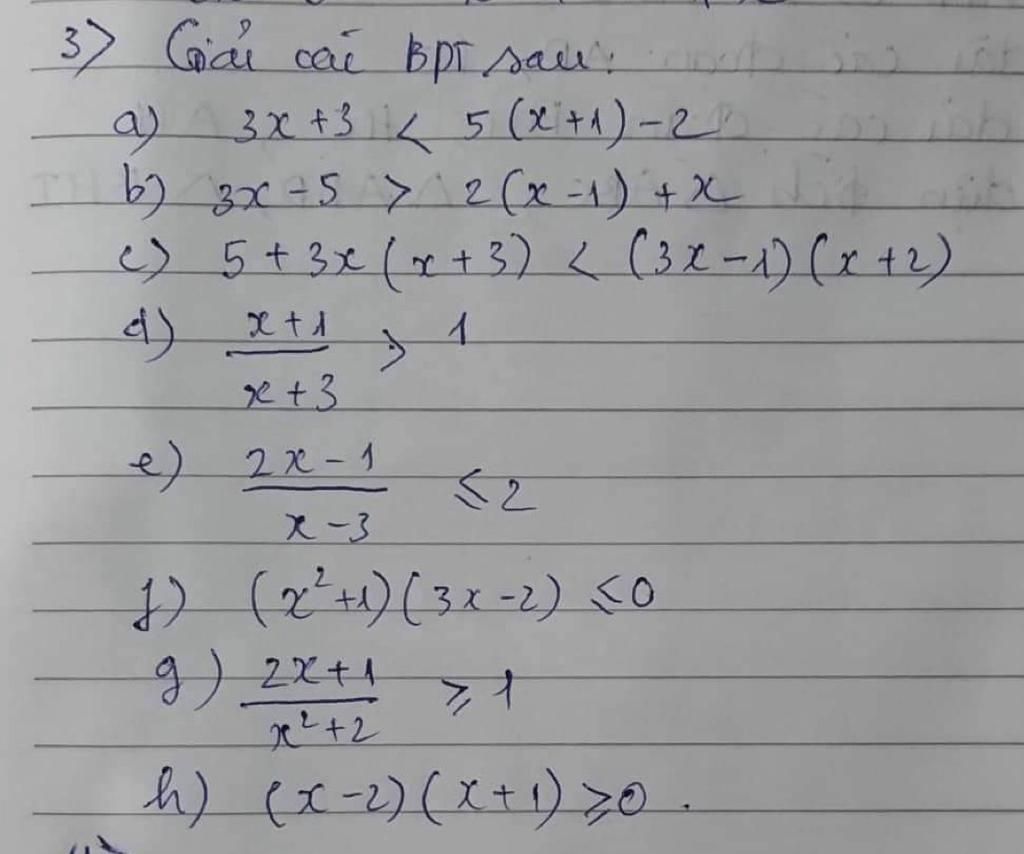 3) Giải các BPT sau:
a) 3x + 3 < 5(x+1) - 2
b) 3x - 5 > 2(x-1) + x
c) 5 + 3x(x+3) < (3x-1)(x+2)
d) \frac{x+1}{x+3} > 1
e) \frac{2x-1}{x-3} ≤ 2
f) (x²+1)(3x-2) ≤ 0
g) \frac{2x+1}{x²+2} ≥ 1
h) (x-2)(x+1) ≥ 0.